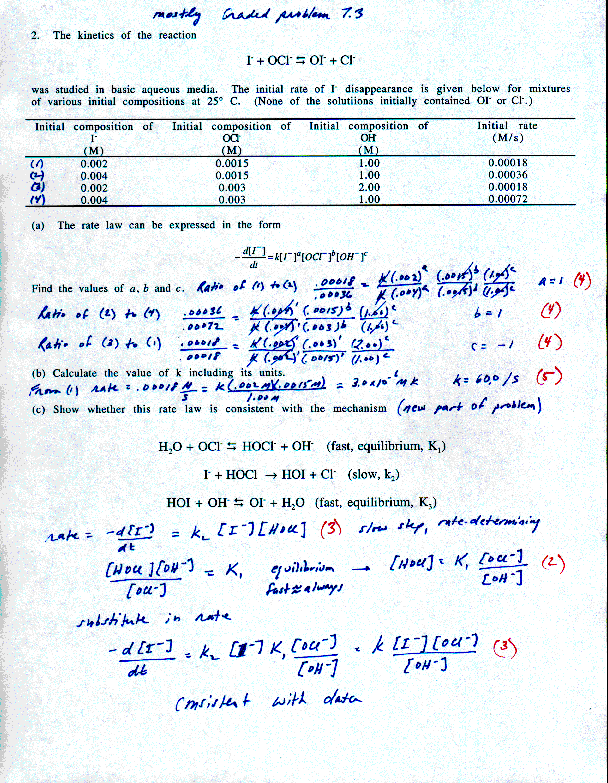 mostly Graded problem 7.3
2. The kinetics of the reaction
I⁻ + OCl⁻ ⇆ OI⁻ + Cl⁻
was studied in basic aqueous media. The initial rate of I⁻ disappearance is given below for mixtures
of various initial compositions at 25° C. (None of the solutiions initially contained OI⁻ or Cl⁻.)
Initial composition of Initial composition of Initial composition of Initial rate
I⁻ OCl⁻ OH⁻ (M/s)
(M) (M) (M)
(1) 0.002 0.0015 1.00 0.00018
(2) 0.004 0.0015 1.00 0.00036
(3) 0.002 0.003 2.00 0.00018
(4) 0.004 0.003 1.00 0.00072
(a) The rate law can be expressed in the form
-d[I⁻]/dt = k[I⁻]ᵃ[OCl⁻]ᵇ[OH⁻]ᶜ
Find the values of a, b and c. Ratio of (1) to (2) .00018/.00036 = k(.002)ᵃ(.0015)ᵇ(1.00)ᶜ / k(.004)ᵃ(.0015)ᵇ(1.00)ᶜ a = 1 (4)
Ratio of (2) to (4) .00036/.00072 = k(.004)¹(.0015)ᵇ(1.00)ᶜ / k(.004)¹(.003)ᵇ(1.00)ᶜ b = 1 (4)
Ratio of (3) to (1) .00018/.00018 = k(.002)¹(.003)¹(2.00)ᶜ / k(.002)¹(.0015)¹(1.00)ᶜ c = -1 (4)
(b) Calculate the value of k including its units.
From (1) rate = .00018 M/s = k(.002M)(.0015M)/1.00M = 3.0x10⁻⁶ M k k = 60.0 /s (5)
(c) Show whether this rate law is consistent with the mechanism (new part of problem)
H₂O + OCl⁻ ⇆ HOCl + OH⁻ (fast, equilibrium, K₁)
I⁻ + HOCl → HOI + Cl⁻ (slow, k₂)
HOI + OH⁻ ⇆ OI⁻ + H₂O (fast, equilibrium, K₃)
rate = -d[I⁻]/dt = k₂ [I⁻][HOCl] (3) slow step, rate-determining
[HOCl][OH⁻]/[OCl⁻] = K₁ equilibrium fast ≈ always → [HOCl] = K₁ [OCl⁻]/[OH⁻] (2)
substitute in rate
-d[I⁻]/dt = k₂ [I⁻] K₁ [OCl⁻]/[OH⁻] = k [I⁻][OCl⁻]/[OH⁻] (3)
Consistent with data